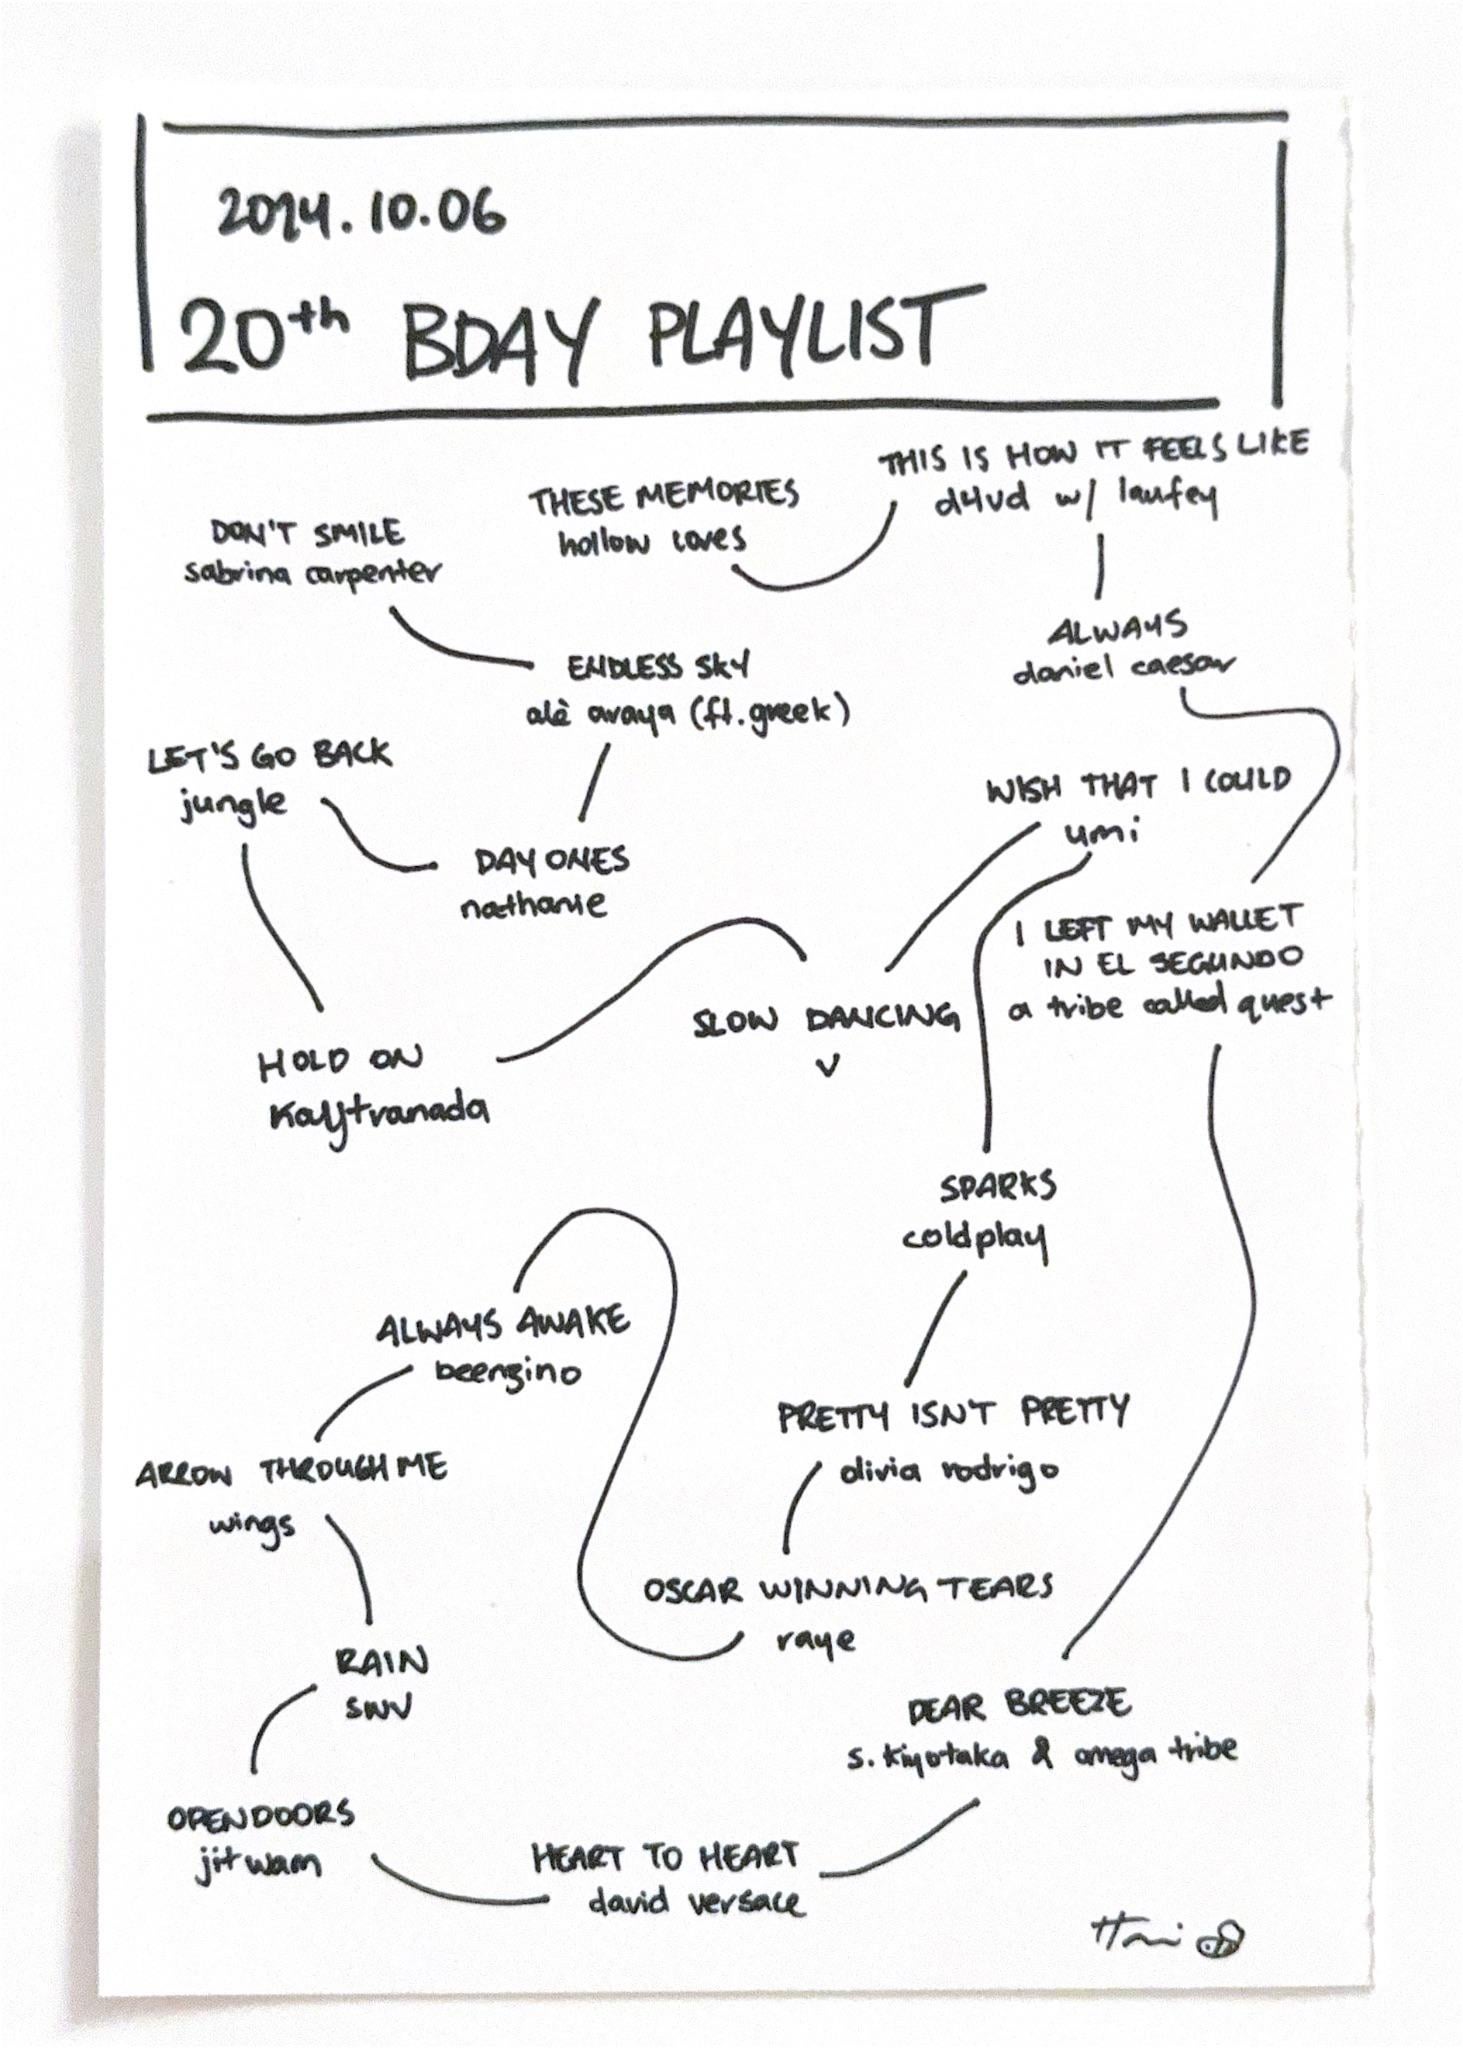 2024.10.06
20th BDAY PLAYLIST
THIS IS HOW IT FEELS LIKE
d4vd w/ laufey
THESE MEMORIES
hollow coves
DON'T SMILE
sabrina carpenter
ALWAYS
daniel caesar
ENDLESS SKY
alè araya (ft. greek)
LET'S GO BACK
jungle
WISH THAT I COULD
umi
DAY ONES
nathanie
I LEFT MY WALLET
IN EL SEGUNDO
a tribe called quest
SLOW DANCING
V
HOLD ON
Kaytranada
SPARKS
coldplay
ALWAYS AWAKE
beenzino
PRETTY ISN'T PRETTY
olivia rodrigo
ARROW THROUGH ME
wings
OSCAR WINNING TEARS
raye
RAIN
SWV
DEAR BREEZE
s. kiyotaka & omega tribe
OPEN DOORS
jitwam
HEART TO HEART
david versace